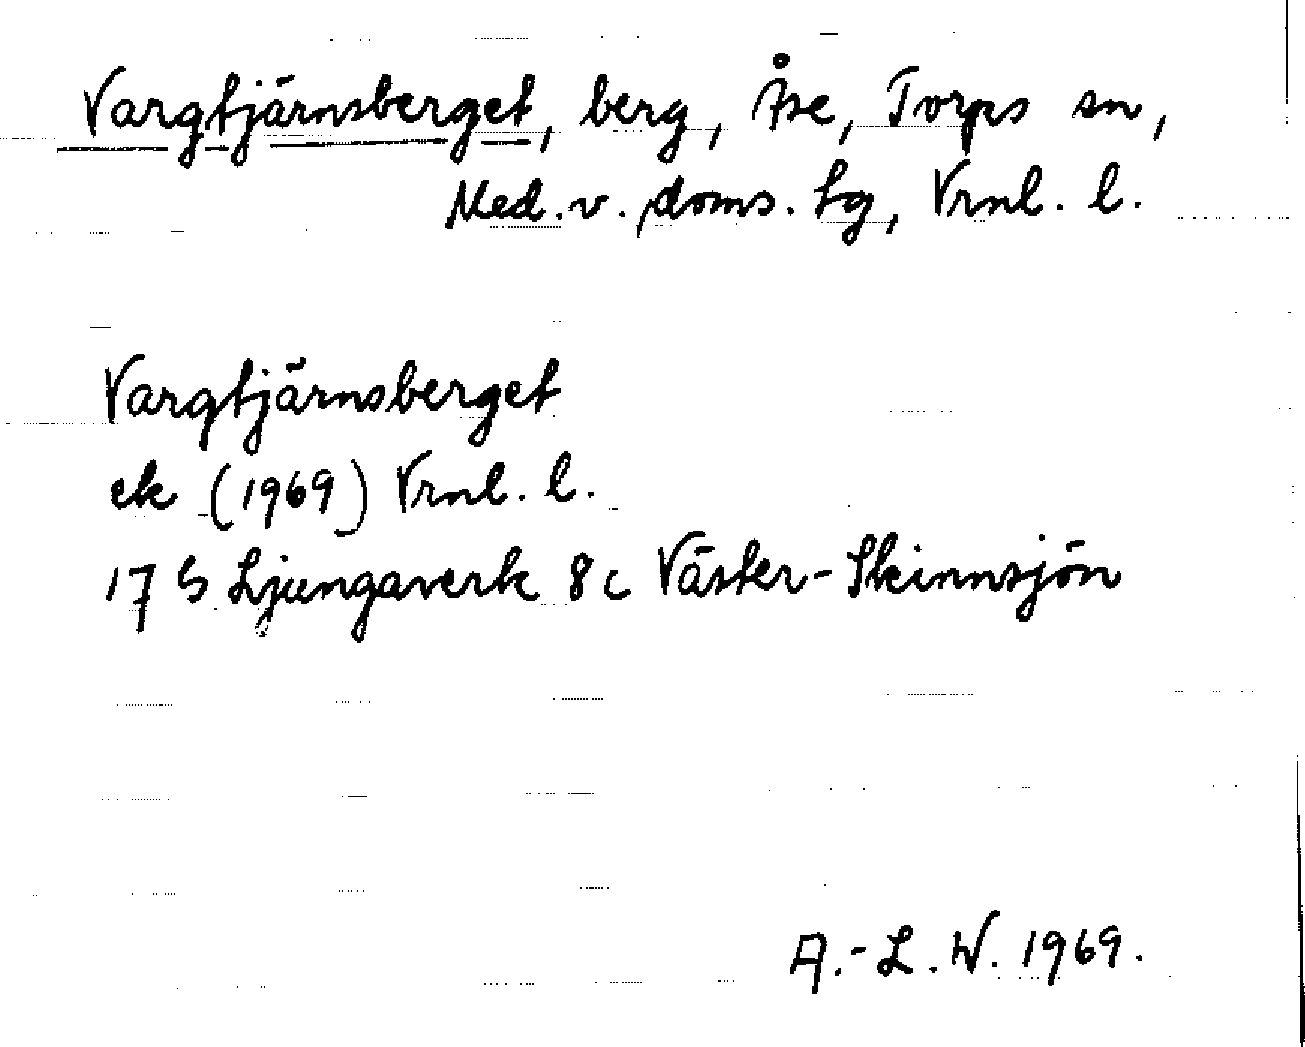 Vargtjärnsberget, berg, Åse, Torps sn,
Med.v. doms. tg, Vrnl. l.
Vargtjärnsberget
ek (1969) Vrnl. l.
17 G Ljungaverk 8c Väster-Skinnsjön
A.-L. W. 1969.